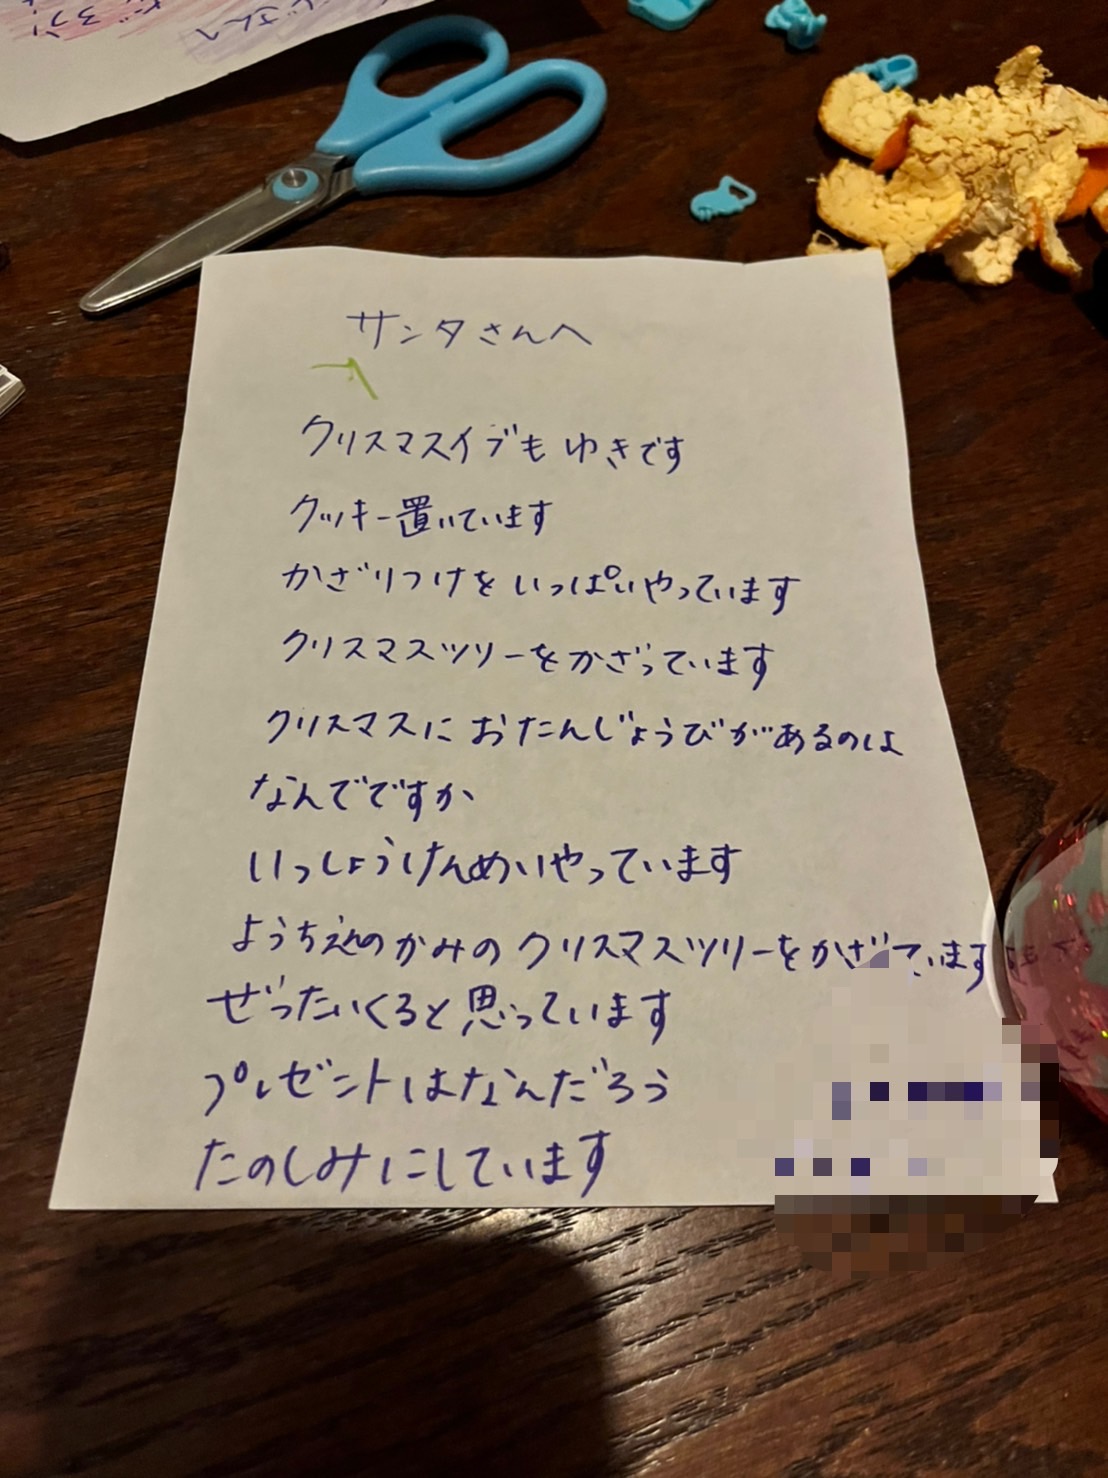 サンタさんへ
クリスマスイブも ゆきです
クッキー置いています
かざりつけを いっぱいやっています
クリスマスツリーをかざっています
クリスマスに おたんじょうびがあるのは
なんでですか
いっしょうけんめいやっています
ようちえんのかみの クリスマスツリーをかざています
ぜったいくると思っています
プレゼントはなんだろう
たのしみにしています